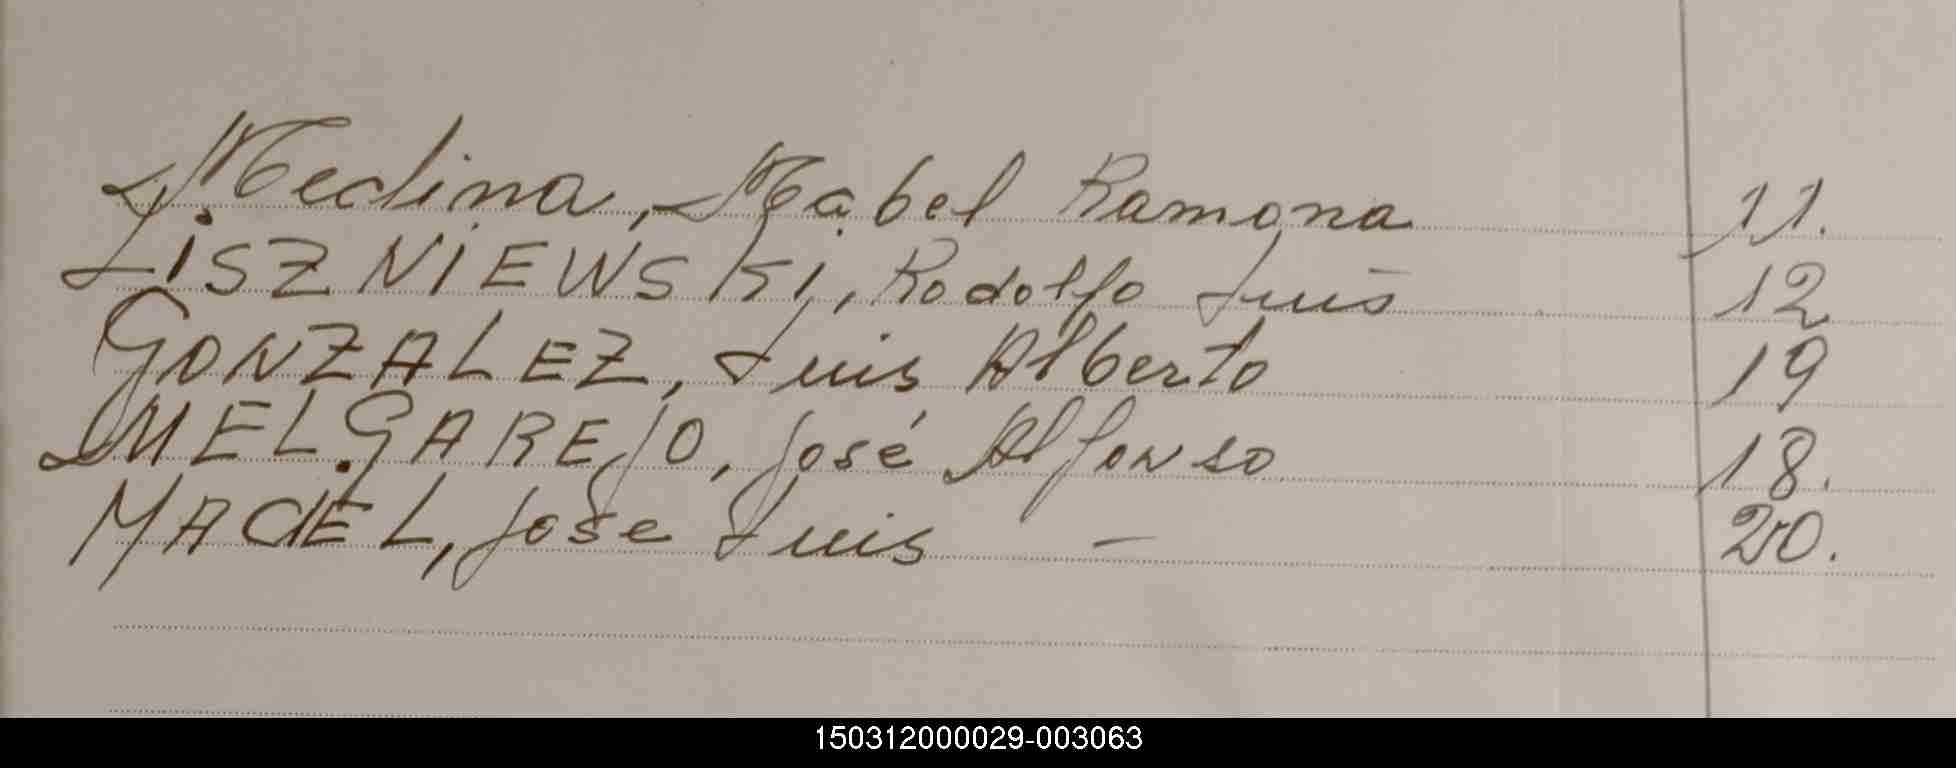 Medina, Mabel Ramona 11.
LISZNIEWSKI, Rodolfo Luis 12
GONZALEZ, Luis Alberto 19
MELGAREJO, José Alfonso 18.
MACIEL, José Luis — 20.
150312000029-003063